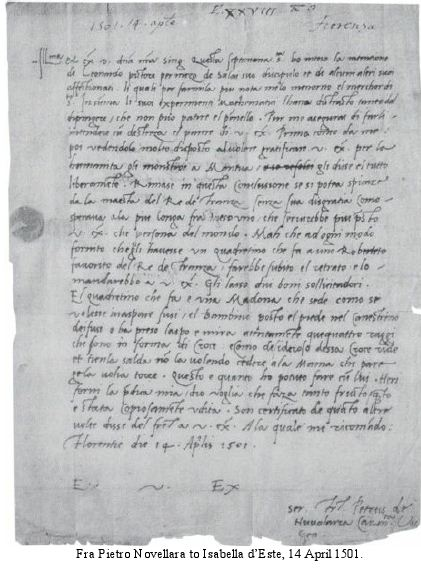 E. xxviii n° 3
1501. 14. aprile
Fiorenza
Ill.ma et Ex. v. d.na mia sing. Questa septimana s.ta ho inteso la intencione
di Leonardo pictore per mezo de Salai suo discipulo et de alcuni altri suoi
affectionati. li quali per farmila piu nota melo menorno el mercordi
s.to In suma li suoi experimenti mathematici lhano distracto tanto dal
dipingere / che non puo patire el penello. Pur me asegurai di farli
intendere in destreza il parere di v. ex. Prima como da me.
poi vedendolo molto disposto al volere gratificare v. ex. per la
humanita gli monstroe a Mantua gli disse el tutto
liberamente. Rimase in questa conclusione se si potea spicare
da la maesta del Re de Franza senza sua disgratia como
sperava a la piu longa fra meso uno, che servirebbe piu presto
v. ex. che persona del mondo. Ma che ad ogni modo
fornito chegli havesse un quadretino che fa a uno Roberteto
favorito del Re de Franza, farebbe subito el retrato e lo
mandarebbe a v. ex. Gli lasso dui boni sollicitadori.
El quadretino che fa e una Madona che sede como se
volesse inaspare fusi, el bambino posto el piede nel canestrino
dei fusi e ha preso laspo e mira atentamente que quattro raggi
che sono in forma di Croce. E como desideroso dessa Croce ride
et tienla salda nō la volendo cedere a la Mama che pare
gela volia torre. Questo e quanto ho potuto fare cū lui. Heri
forni la pdica mia / dio voglia che faza tanto fructo qto
e stata copiosamente udita.
v. ex. A la quale me ricomādo:
Florentie die 14 Aplis 1501.
E. v. Ex
ser. Fr. Petrus de
Nuvolaria
Fra Pietro Novellara to Isabella d'Este, 14 April 1501.